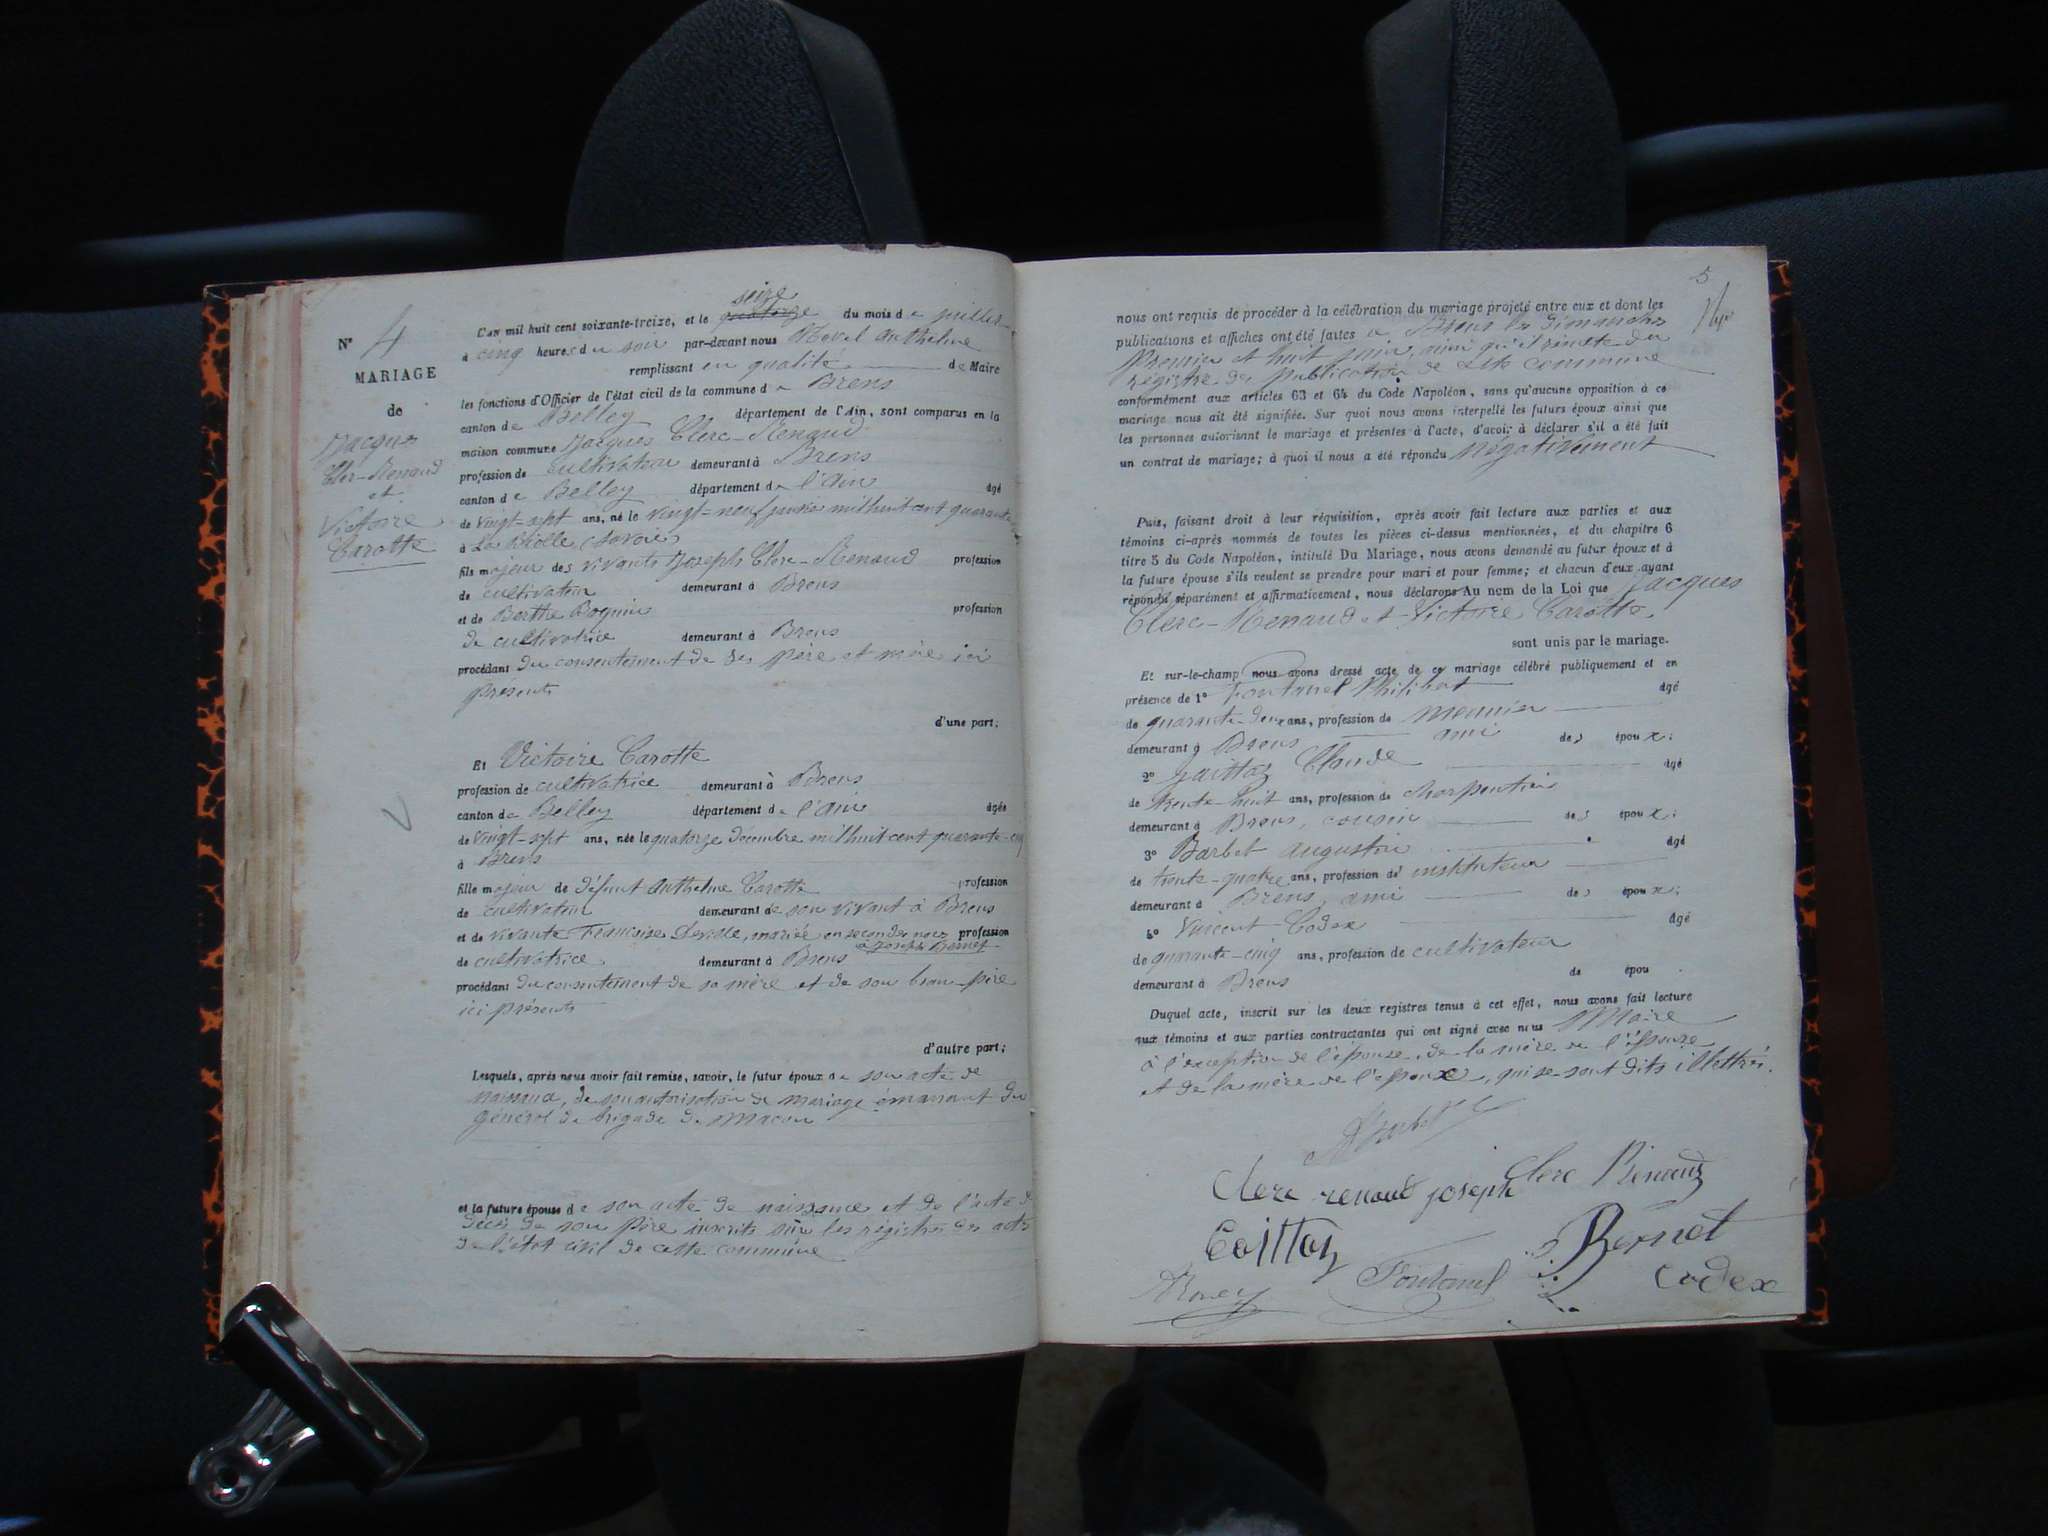 Nº 4
MARIAGE
de
Jacques
Clerc-Renaud
et
Victoire
Carotte
L'an mil huit cent soixante-treize, et le quatorze seize du mois de juillet
à cinq heures du soir par-devant nous Anthelme
remplissant en qualité de Maire
les fonctions d'Officier de l'état civil de la commune de Brens
canton de Belley département de l'Ain, sont comparus en la
maison commune Jacques Clerc-Renaud
profession de cultivateur demeurant à Brens
canton de Belley département de l'Ain âgé
de vingt-sept ans, né le vingt-neuf janvier mil huit cent quarante
à La Biolle (Savoie)
fils majeur des vivants Joseph Clerc-Renaud profession
de cultivateur demeurant à Brens
et de Berthe profession
de cultivatrice demeurant à Brens
procédant du consentement de ses père et mère ici
présents
d'une part;
Et Victoire Carotte
profession de cultivatrice demeurant à Brens
canton de Belley département de l'Ain âgée
de vingt-sept ans, née le quatorze décembre mil huit cent quarante-cinq
à Brens
fille majeur de défunt Anthelme Carotte profession
de cultivateur demeurant de son vivant à Brens
et de vivante Françoise mariée en secondes noces profession
à Joseph Bernet
de cultivatrice demeurant à Brens
procédant du consentement de sa mère et de son beau-père
ici présents
d'autre part;
Lesquels, après nous avoir fait remise, savoir, le futur époux de son acte de
naissance, de son autorisation de mariage émanant du
général de brigade de Macon
et la future épouse de son acte de naissance et de l'acte de
décès de son père inscrits sur les régistres des actes
de l'état civil de cette commune
5
nous ont requis de procéder à la célébration du mariage projeté entre eux et dont les
publications et affiches ont été faites à Brens les dimanches
premier et huit juin, ainsi qu'il résulte du
régistre de publication de dite commune
conformément aux articles 63 et 64 du Code Napoléon, sans qu'aucune opposition à ce
mariage nous ait été signifiée. Sur quoi nous avons interpellé les futurs époux ainsi que
les personnes autorisant le mariage et présentes à l'acte, d'avoir à déclarer s'il a été fait
un contrat de mariage; à quoi il nous a été répondu négativement
Puis, faisant droit à leur réquisition, après avoir fait lecture aux parties et aux
témoins ci-après nommés de toutes les pièces ci-dessus mentionnées, et du chapitre 6
titre 5 du Code Napoléon, intitulé Du Mariage, nous avons demandé au futur époux et à
la future épouse s'ils veulent se prendre pour mari et pour femme; et chacun d'eux ayant
répondu séparément et affirmativement, nous déclarons Au nom de la Loi que Jacques
Clerc-Renaud et Victoire Carotte
sont unis par le mariage.
Et sur-le-champ nous avons dressé acte de ce mariage célébré publiquement et en
présence de 1º Fontanel Philibert âgé
de quarante-deux ans, profession de meunier
demeurant à Brens ami des époux;
2º Goittoz Claude âgé
de trente-huit ans, profession de charpentier
demeurant à Brens, cousin des époux;
3º Barbet Augustin âgé
de trente-quatre ans, profession de instituteur
demeurant à Brens, ami des époux;
4º Vincent Codex âgé
de quarante-cinq ans, profession de cultivateur
demeurant à Brens de épou
Duquel acte, inscrit sur les deux registres tenus à cet effet, nous avons fait lecture
aux témoins et aux parties contractantes qui ont signé avec nous Maire
à l'exception de l'épouse, de la mère de l'épouse
et de la mère de l'époux, qui se sont dits illettrés.
Clerc renaud joseph Clerc Renaud
Goittoz Bernet
Fontanel Codex